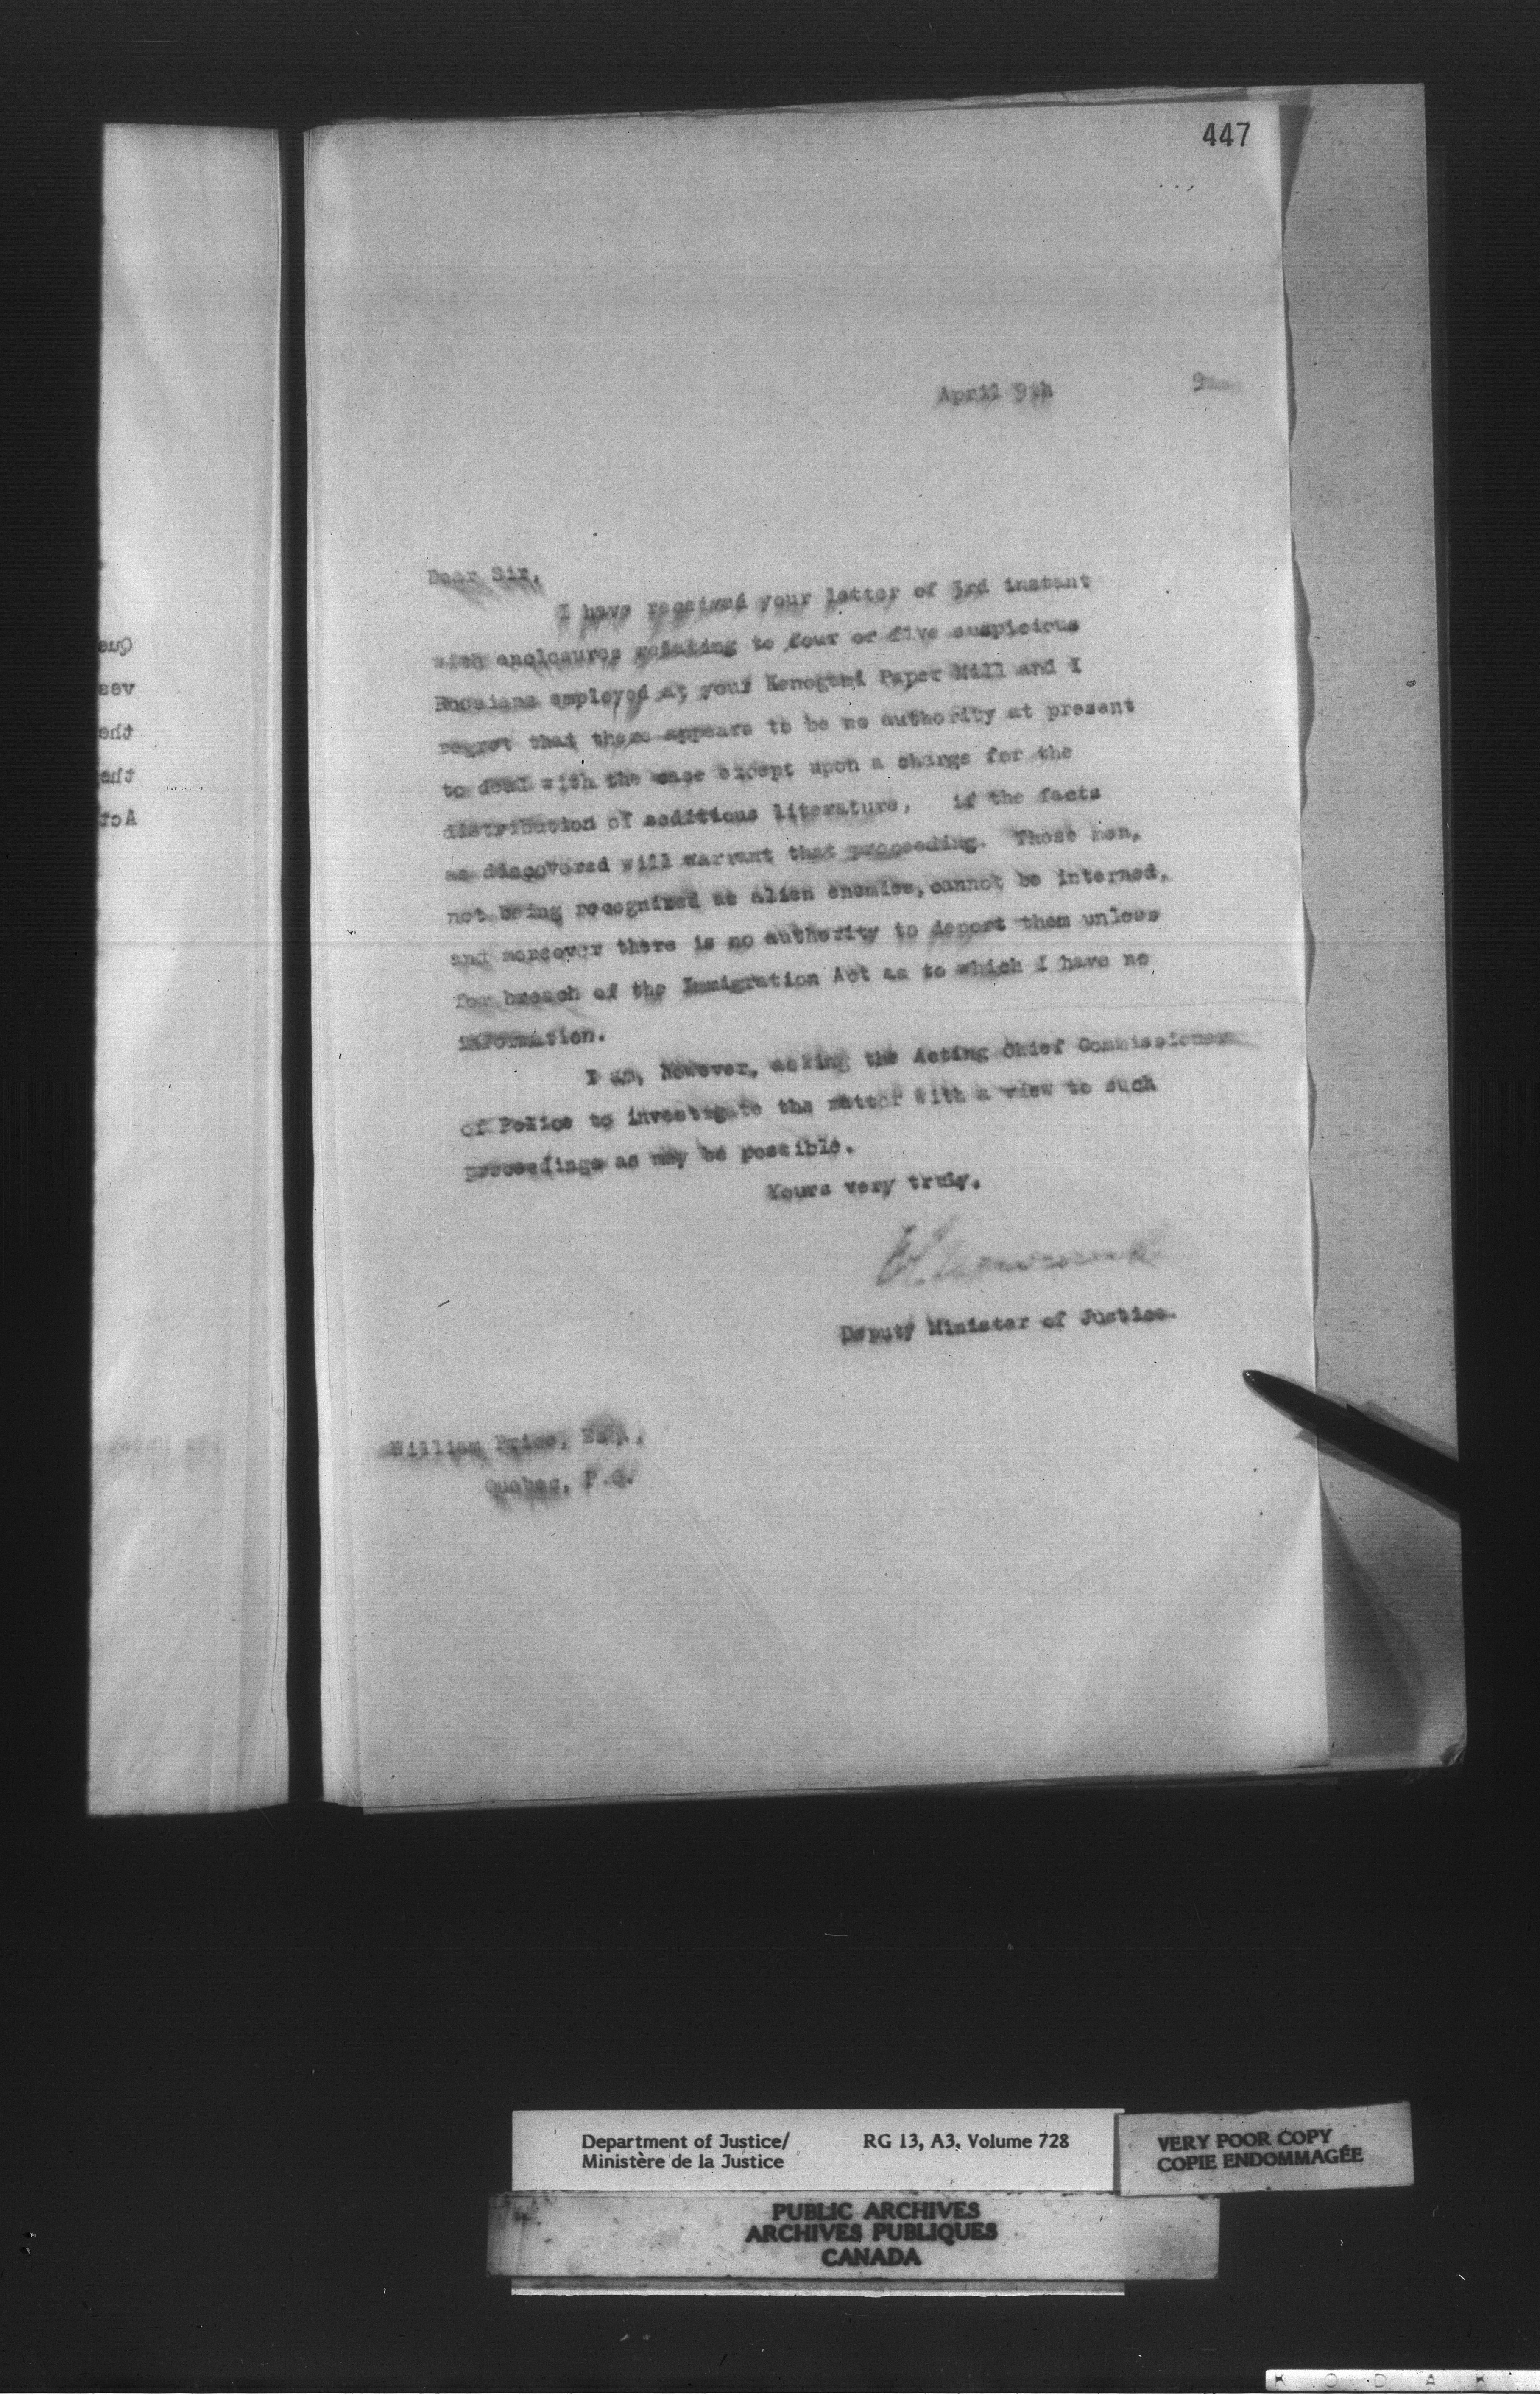 447
April 9th 9
Dear Sir,
I have received your letter of 3rd instant
with enclosures relating to four or five suspicious
Russians employed at your Kenogami Paper Mill and I
regret that there appears to be no authority at present
to deal with the case except upon a charge for the
distribution of seditious literature, if the facts
as discovered will warrant that proceeding. These men,
not being recognized as alien enemies, cannot be interned,
and moreover there is no authority to deport them unless
for breach of the Immigration Act as to which I have no
information.
I am, however, asking the Acting Chief Commissioner
of Police to investigate the matter with a view to such
proceedings as may be possible.
Yours very truly,
Deputy Minister of Justice.
William Price, Esq.,
Quebec, P.Q.
Department of Justice/ RG 13, A3, Volume 728
Ministère de la Justice
VERY POOR COPY
COPIE ENDOMMAGÉE
PUBLIC ARCHIVES
ARCHIVES PUBLIQUES
CANADA
KODAK